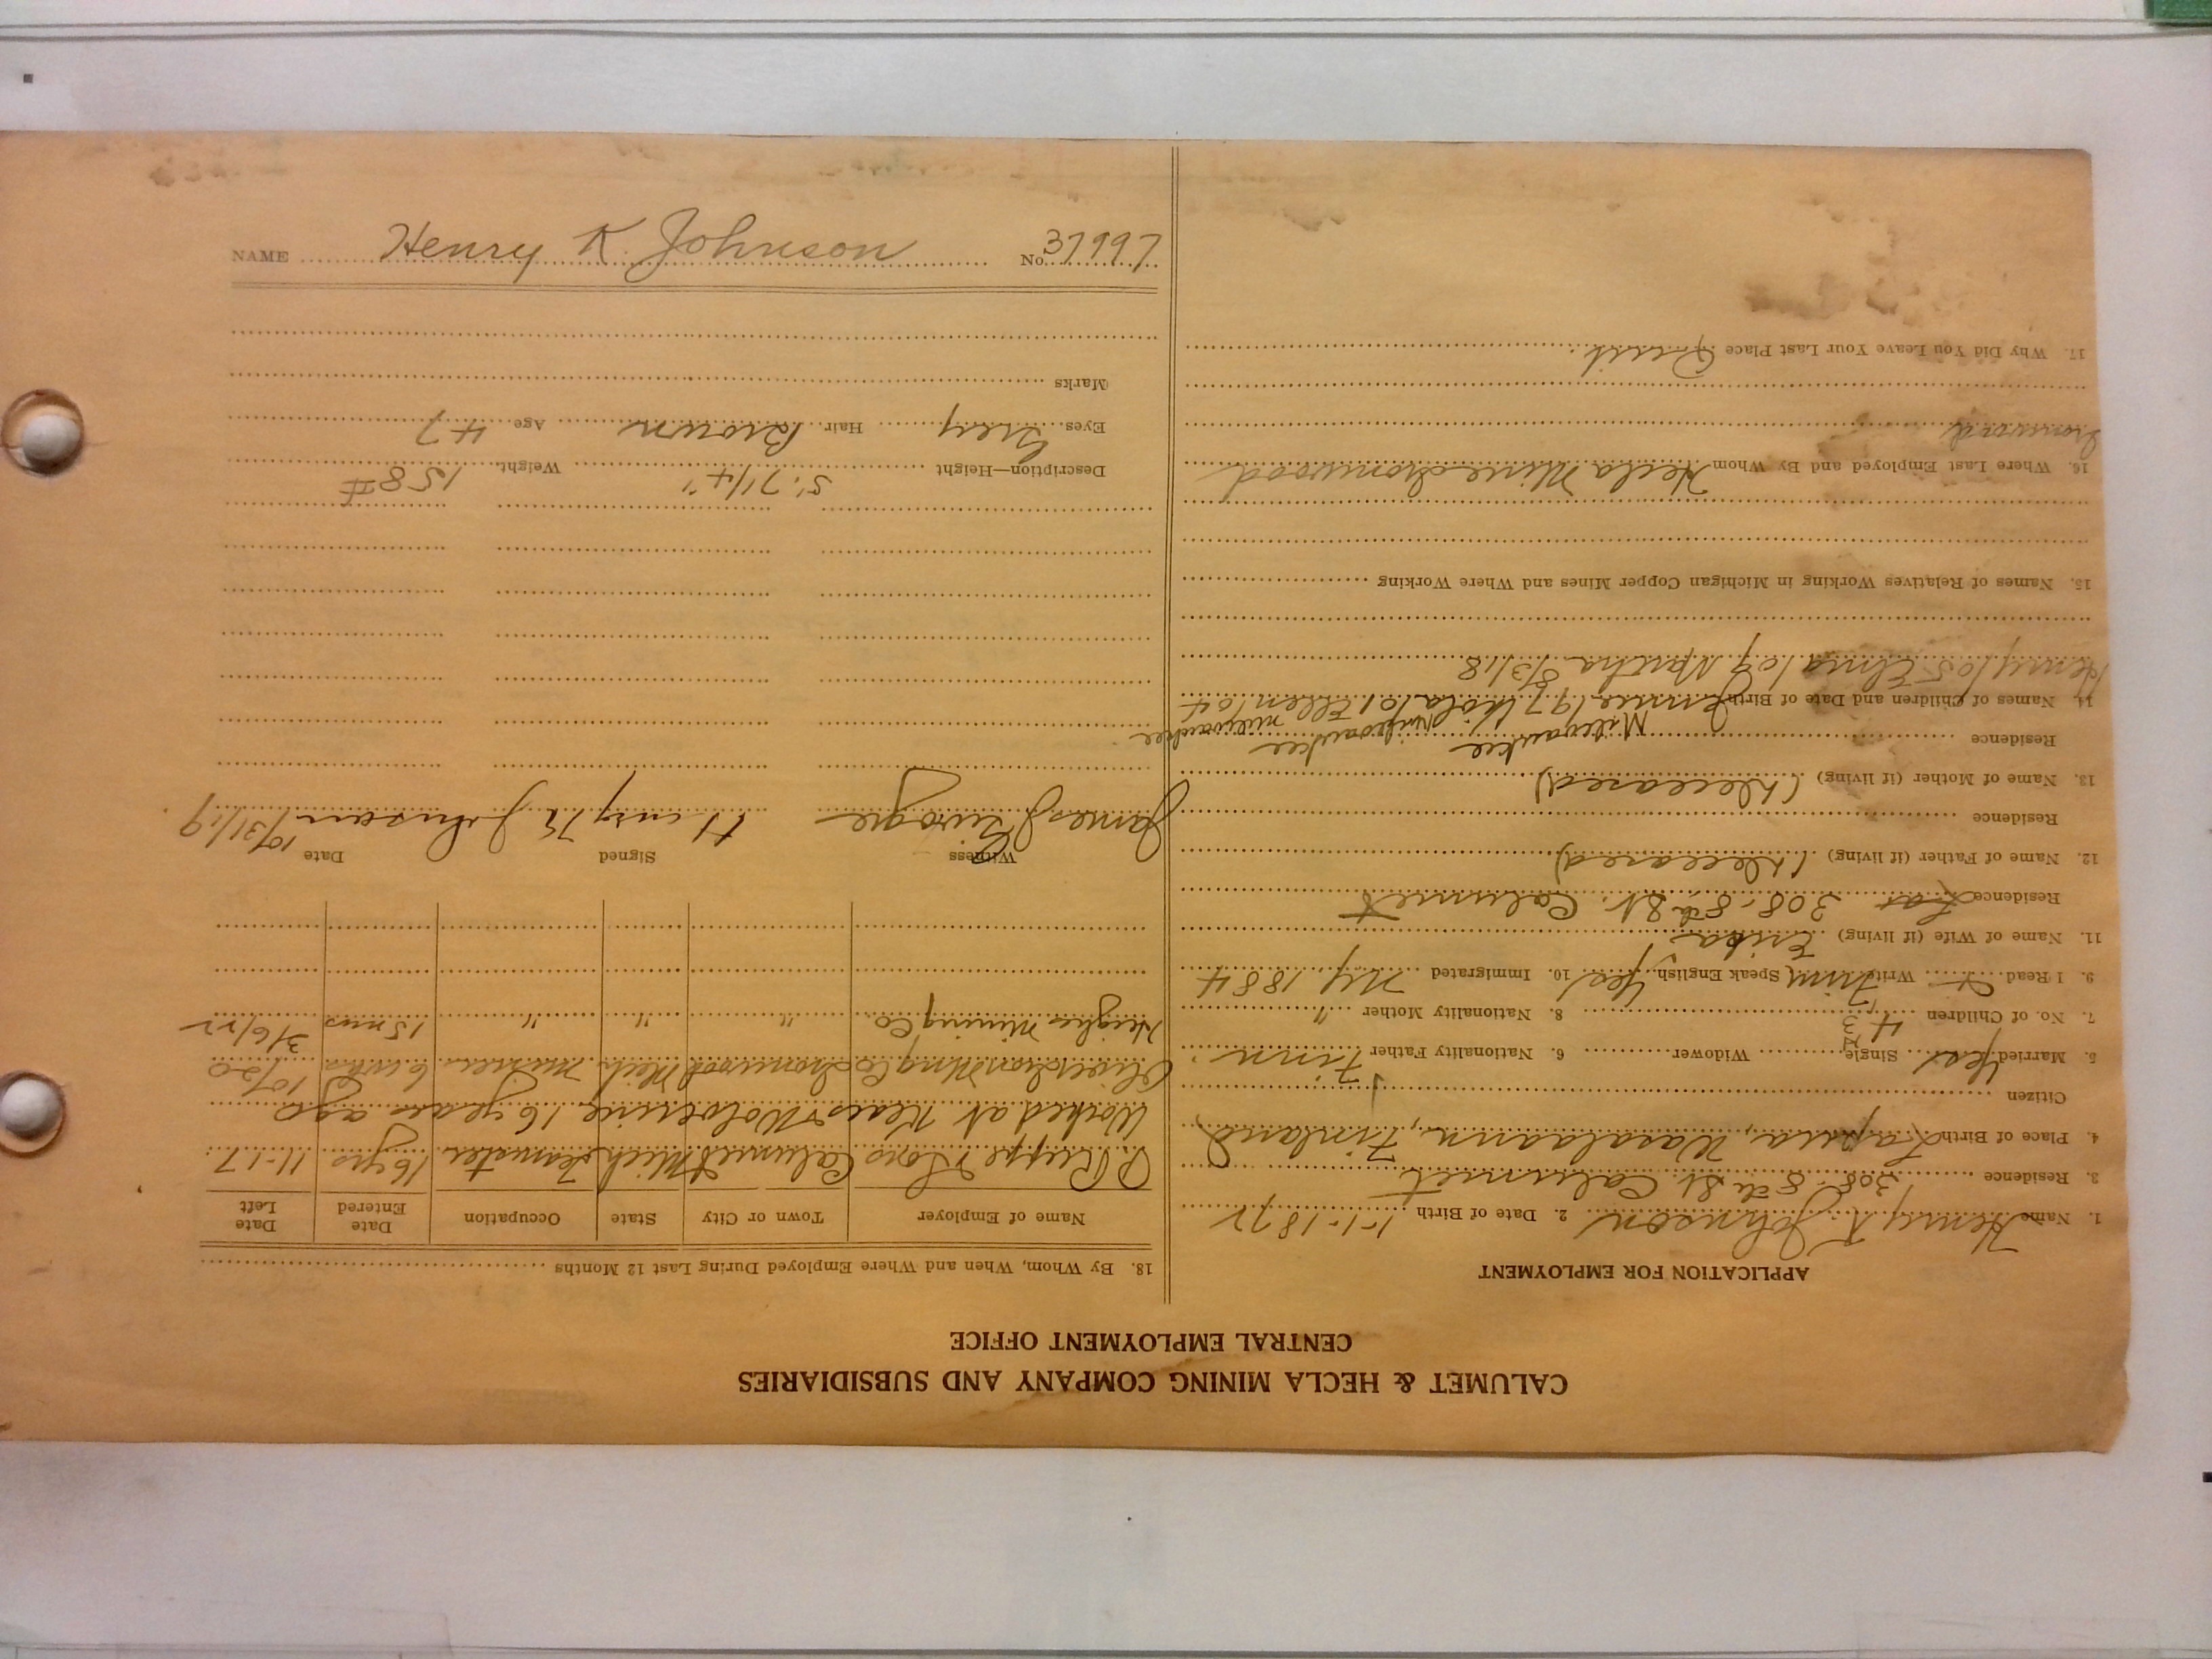 CALUMET & HECLA MINING COMPANY AND SUBSIDIARIES
CENTRAL EMPLOYMENT OFFICE
APPLICATION FOR EMPLOYMENT
1. Name Henry K. Johnson 2. Date of Birth 1-1-1872
3. Residence 308-8th St. Calumet
4. Place of Birth Lapua, Wasalaann, Finland
Citizen
5. Married Yes Single Widower 6. Nationality Father Finn
7. No. of Children 8. Nationality Mother "
9. I Read Write Finn Speak English Yes 10. Immigrated NY 1884
11. Name of Wife (if living) Erika
Residence 308-8th St. Calumet
12. Name of Father (if living) (Deceased)
Residence
13. Name of Mother (if living) (Deceased)
Residence Milwaukee Milwaukee Milwaukee
14. Names of Children and Date of Birth Jennie/97 Viola/01 Ellen/04
Henry/05 Elma/09 Martha 8/3/18
15. Names of Relatives Working in Michigan Copper Mines and Where Working
16. Where Last Employed and By Whom Hecla Mine Ironwood
Ironwood
17. Why Did You Leave Your Last Place Quit.
18. By Whom, When and Where Employed During Last 12 Months
Name of Employer Town or City State Occupation Date Entered Date Left
P. Ruppe & Sons Calumet Mich Teamster 16 yrs 11-17
Worked at Kears & Wolverine 16 years ago
Oliver Iron Ming Co Ironwood Mich miner 10/20
Mining Co. " " " 15 mos 3/6/22
Witness Signed Date
James J. Henry K Johnson 10/31/19
Description—Height 5' 7 1/4" Weight 158#
Eyes Grey Hair Brown Age 47
Marks
NAME Henry K. Johnson No. 37997